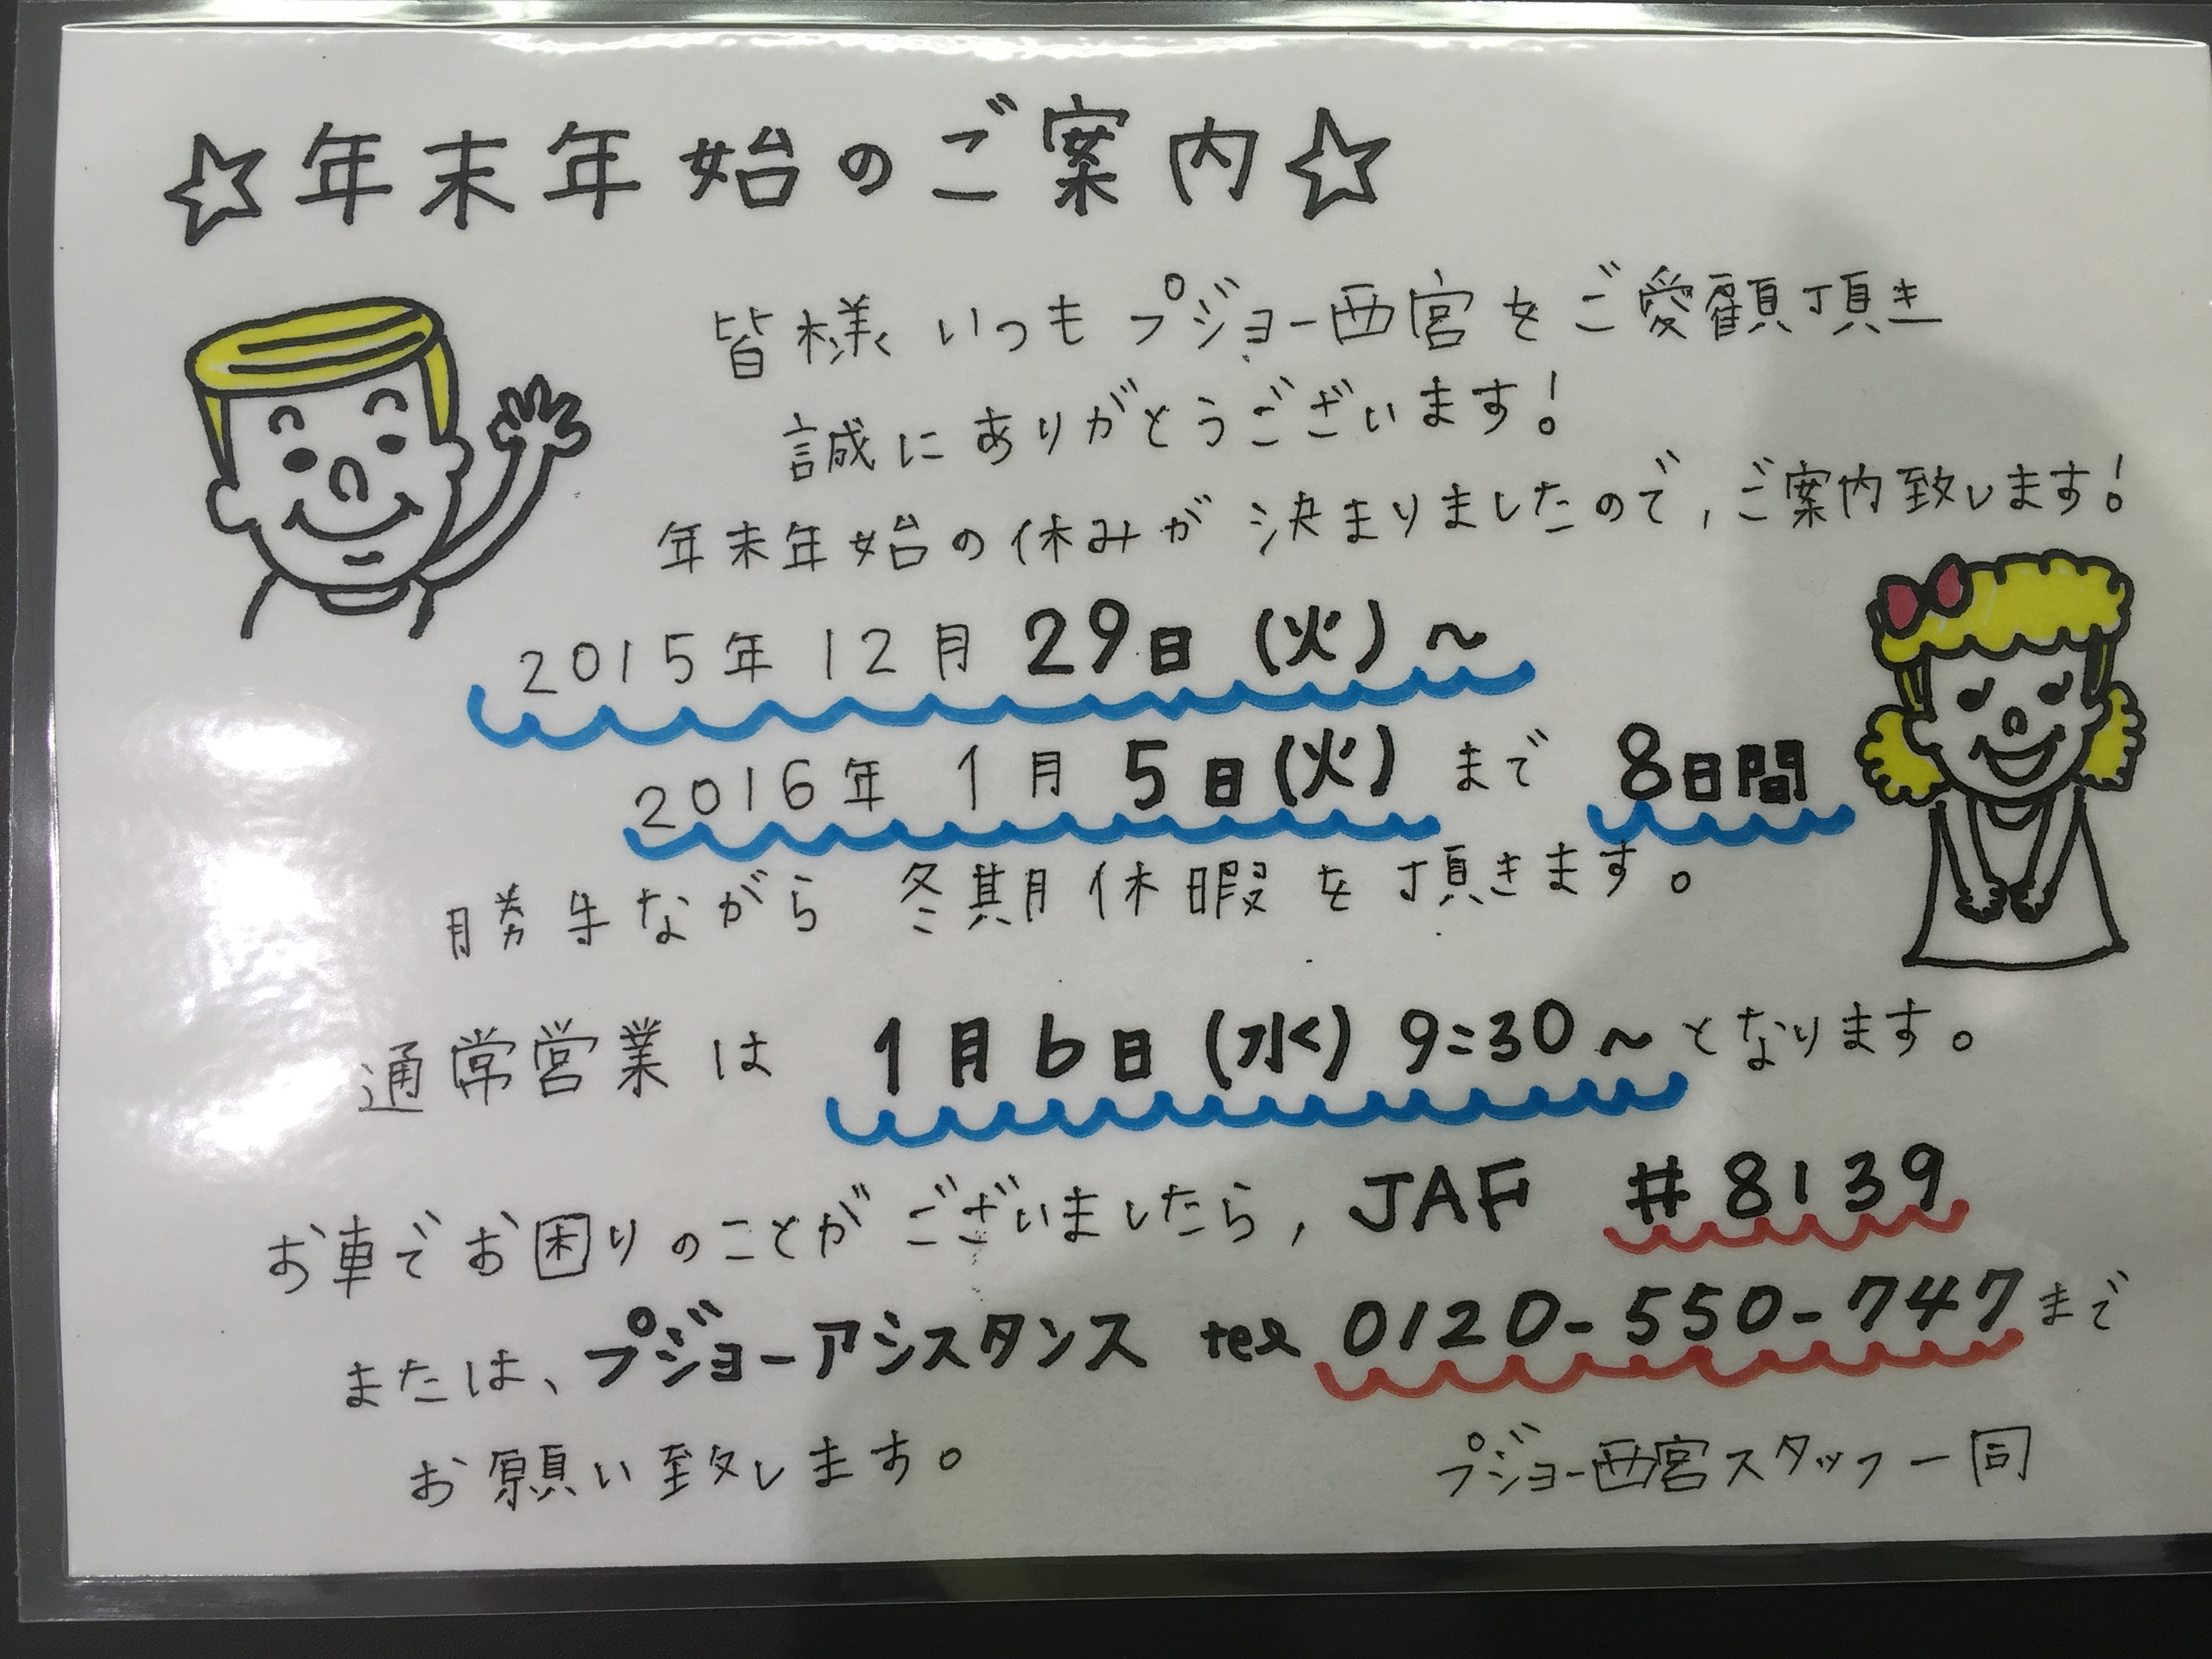 ☆年末年始のご案内☆
皆様 いつも プジョー西宮をご愛顧頂き
誠にありがとうございます!
年末年始の休みが決まりましたので,ご案内致します!
2015年 12月 29日 (火) ~
2016年 1月 5日(火) まで 8日間
勝手ながら 冬期休暇を頂きます。
通常営業は 1月6日(水) 9:30~となります。
お車でお困りのことがございましたら, JAF #8139
または、プジョーアシスタンス tel 0120-550-747まで
お願い致します。
プジョー西宮スタッフ一同